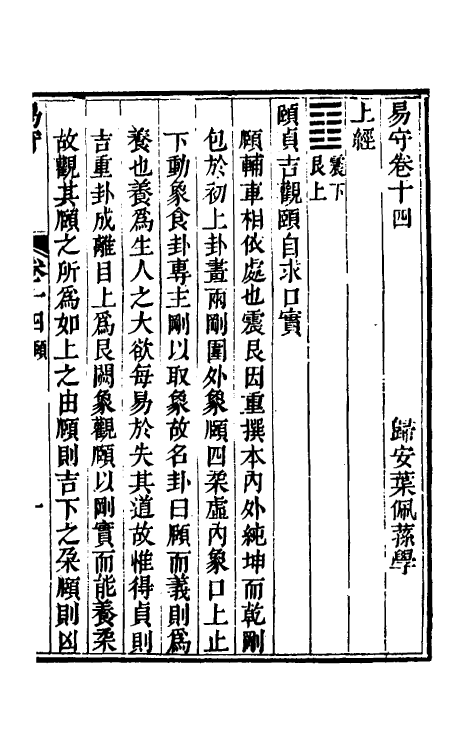 易守卷十四
歸安葉佩蓀學
上經
震下
艮上
頤貞吉觀頤自求口實
頤輔車相依處也震艮因重撰本內外純坤而乾剛
包於初上卦畫兩剛圍外象頤四柔虛內象口上止
下動象食卦專主剛以取象故名卦曰頤而義則爲
養也養爲生人之大欲每易於失其道故惟得貞則
吉重卦成離目上爲艮闕象觀頤以剛實而能養柔
故觀其頤之所爲如上之由頤則吉下之朶頤則凶
易守
卷十四 頤
一